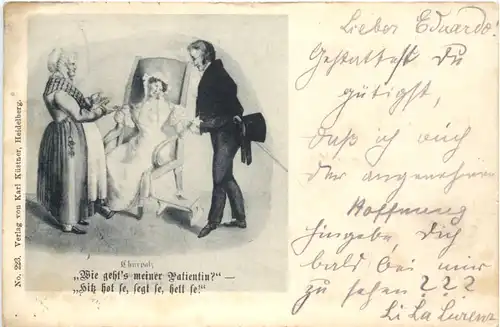 No. 223. Verlag von Karl Küstner, Heidelberg.
Churpalz
„Wie geht's meiner Patientin?" —
„Hitz hot se, segt se, hett se!"
Lieber Eduardo!
Gestattest Du
gütigst,
daß ich mich
der angenehmen
Hoffnung
hingebe Dich
bald bei mir
zu sehen ? ? ?
Li La Lorenz